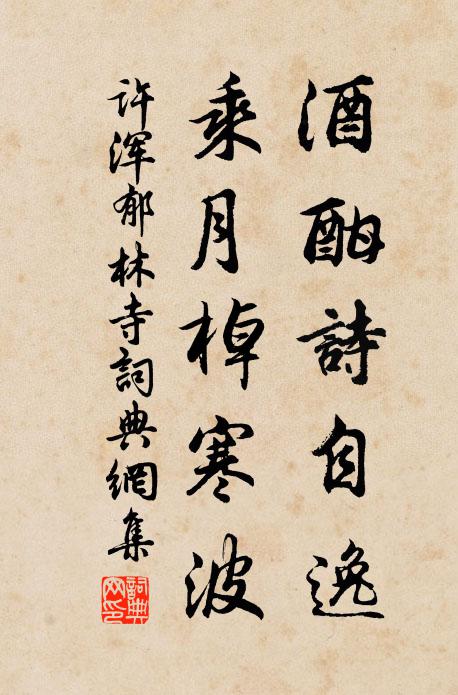 酒酣詩自逸
乘月棹寒波
许浑郁林寺詞典網集
詞典网印